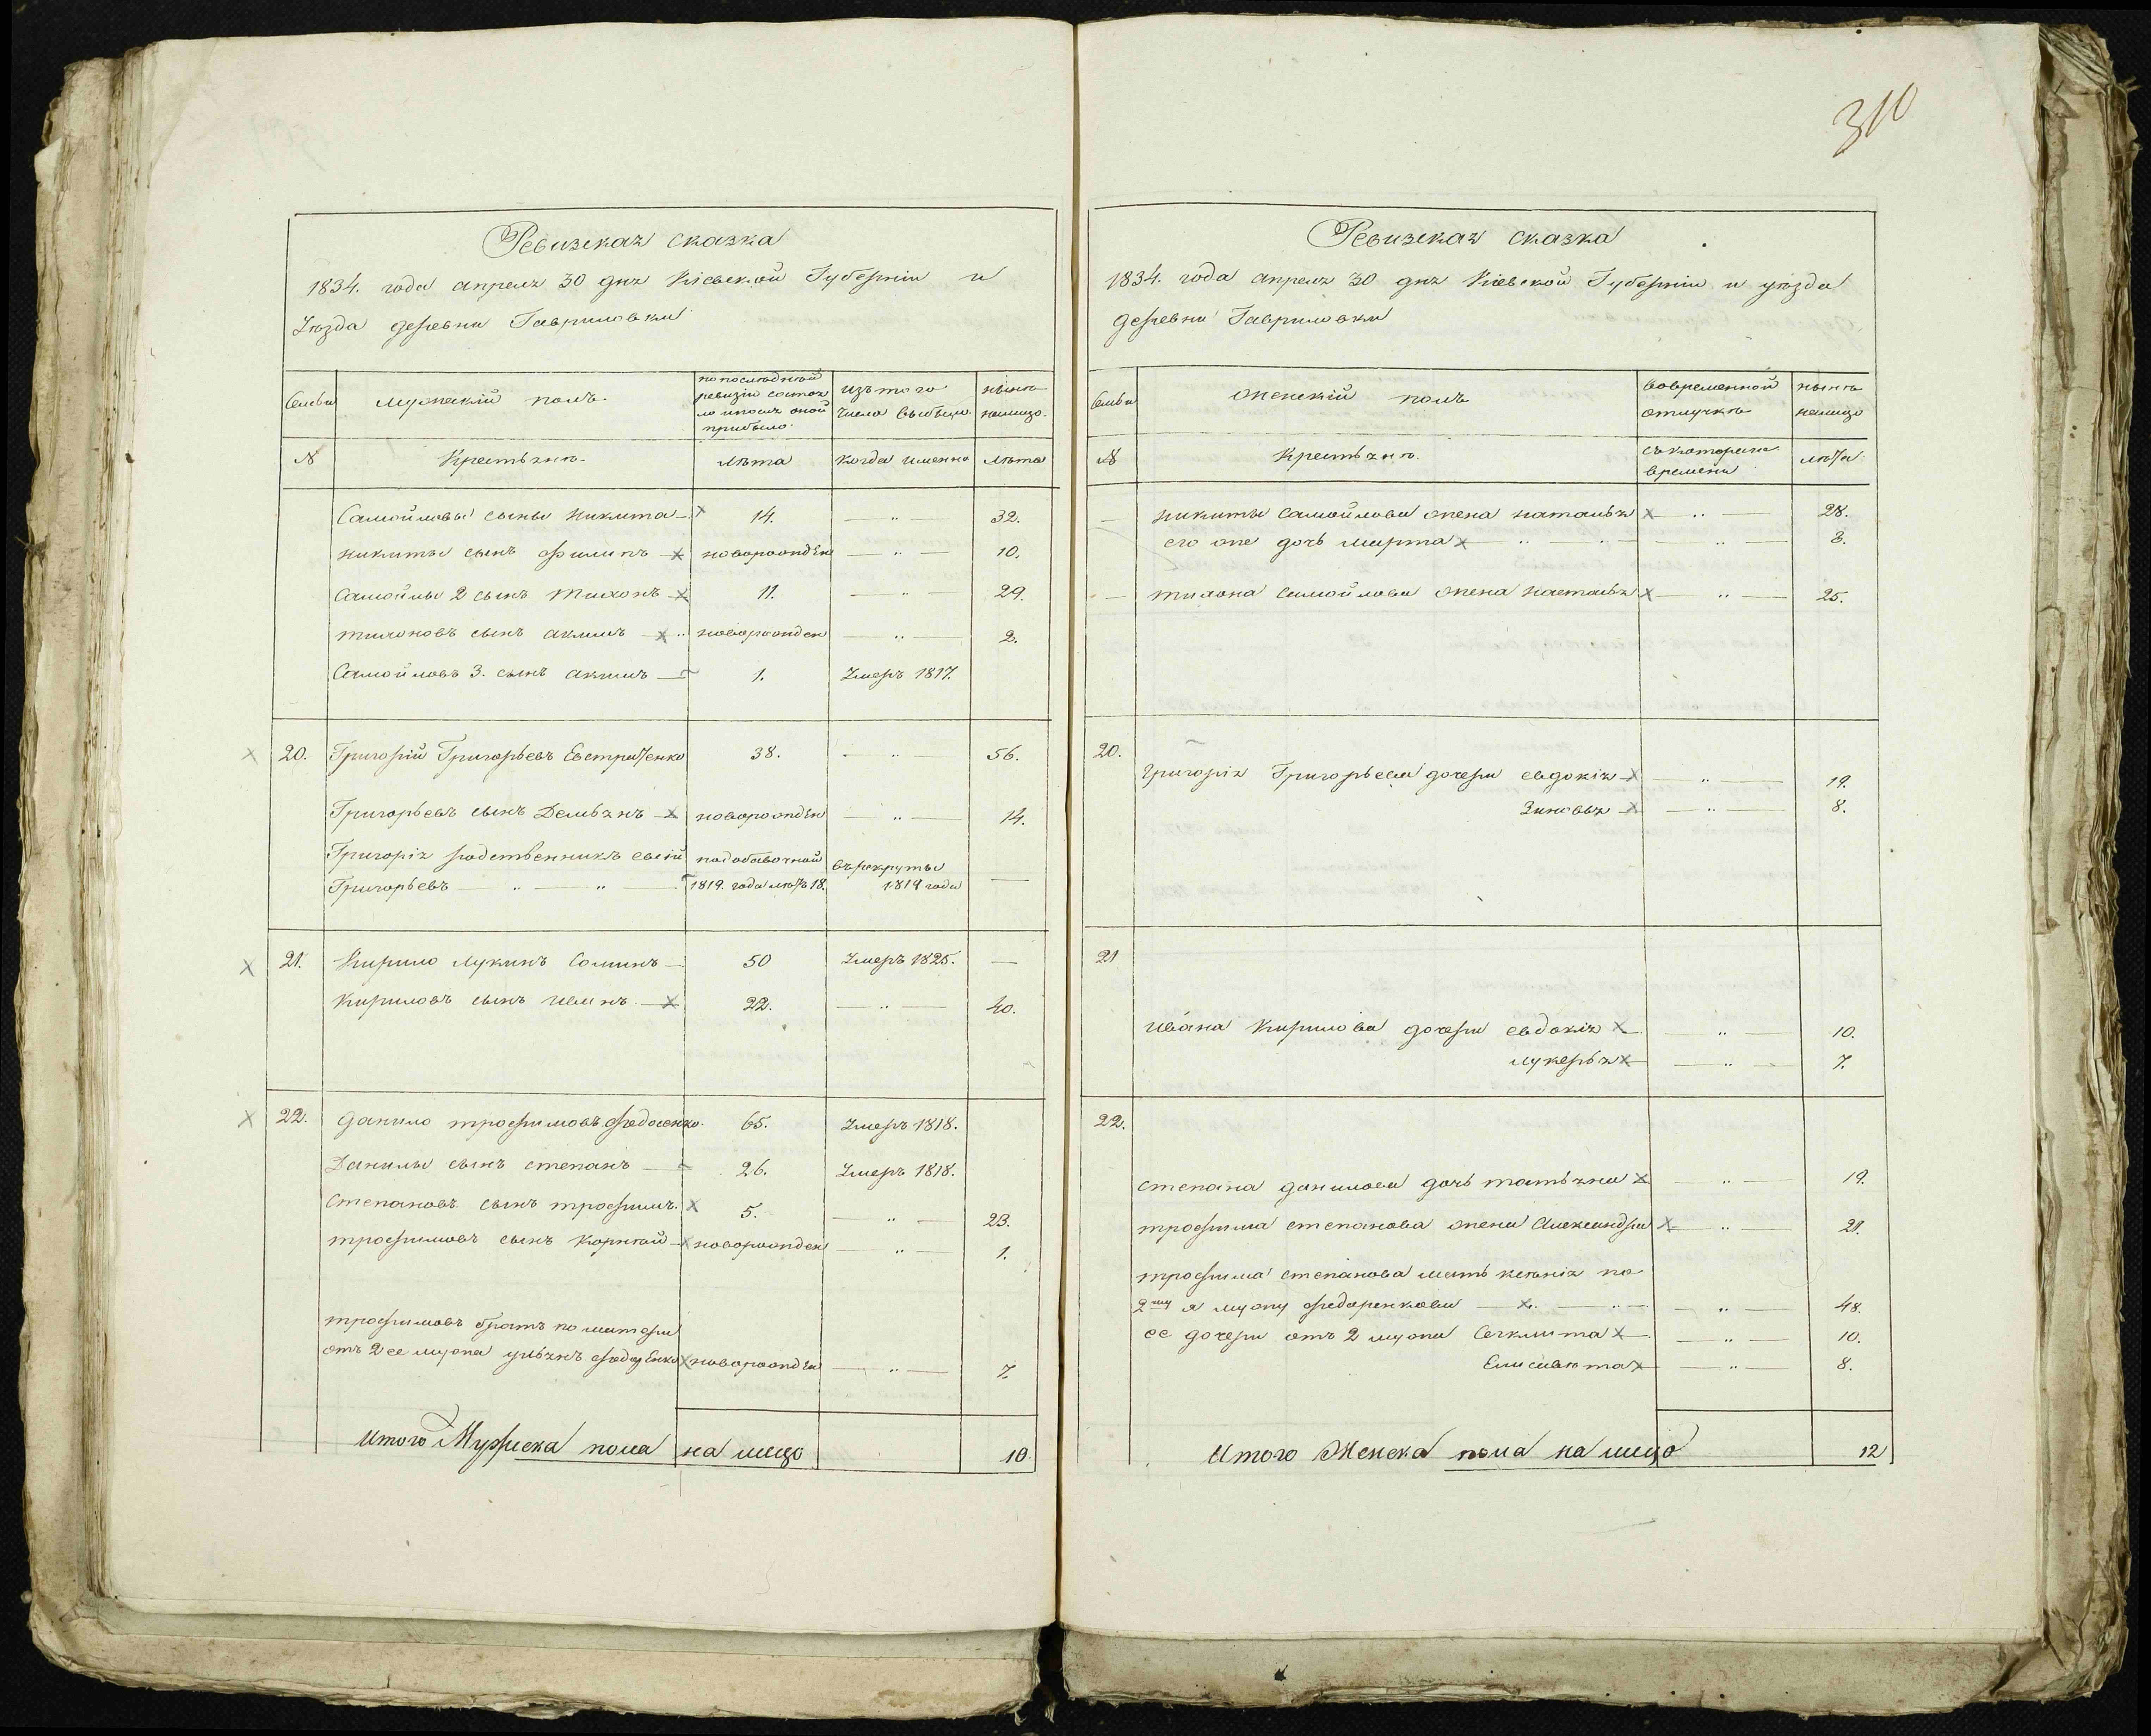 310
Ревизская сказка
1834. года апреля 30 дня Кіевской Губерніи и
Уѣзда деревни Гавриловки
Семьи
мужескій полъ.
по послѣдней
ревизіи состоя
ло и послѣ оной
прибыло.
изъ того
числа выбыло.
нынѣ
налицо.
№
Крестьянѣ.
лѣта
когда именно
лѣта
Самойловы сыны Никита 14. — „ — 32.
Никиты сынъ Филипъ новорожденъ — „ — 10.
Самойлы 2 сынъ Тихонъ 11. — „ — 29.
Тихоновъ сынъ Акимъ новорожден — „ — 2.
Самойловъ 3. сынъ Акимъ 1. Умеръ 1817.
20. Григорій Григорьевъ Евстратенко 38. — „ — 56.
Григорьевъ сынъ Демьянъ новорожденъ — „ — 14.
Григорія родственникъ подобавочной въ рекруты
Григорьевъ — „ — „ — 1819. года лѣтъ 18. 1819 года —
21. Кирило Лукинъ 50 Умеръ 1825. —
Кириловъ сынъ Иванъ 22. — „ — 40.
22. Данило Трофимовъ Федосенко. 65. Умеръ 1818.
Данилы сынъ Степанъ — 26. Умеръ 1818.
Степановъ сынъ Трофимъ. 5. — „ — 23.
Трофимовъ сынъ Корнѣй новорожден — „ — 1.
Трофимовъ братъ по матери
отъ 2 ее мужа Ульянъ новорожден — „ — 7.
Итого Мужеска пола на лицо 10
Ревизская сказка
1834. года апреля 30 дня Кіевской Губерніи и уѣзда
деревни Гавриловки
Семьи
женскій полъ
вовременной
отлучкѣ
нынѣ
налицо
№
Крестьянѣ.
съ котораго
времени
лѣта
— Никиты Самойлова жена Наталья — „ — 28.
его же дочь Марта — „ — 3.
— Тихона Самойлова жена Настасья — „ — 25.
20.
Григорія Григорьева дочери Евдокія — „ — 19.
Зиновья — „ — 8.
21
Ивана Кирилова дочери Евдокія — „ — 10.
Лукерья — „ — 7.
22.
Степана Данилова дочь Татьяна — „ — 19.
Трофима Степанова жена Александра — „ — 21.
Трофима Степанова мать Ксенія по
2му я мужу Федоренкова — „ — 48.
ее дочери отъ 2 мужа — „ — 10.
Елисавета — „ — 8.
Итого Женска пола на лицо 12